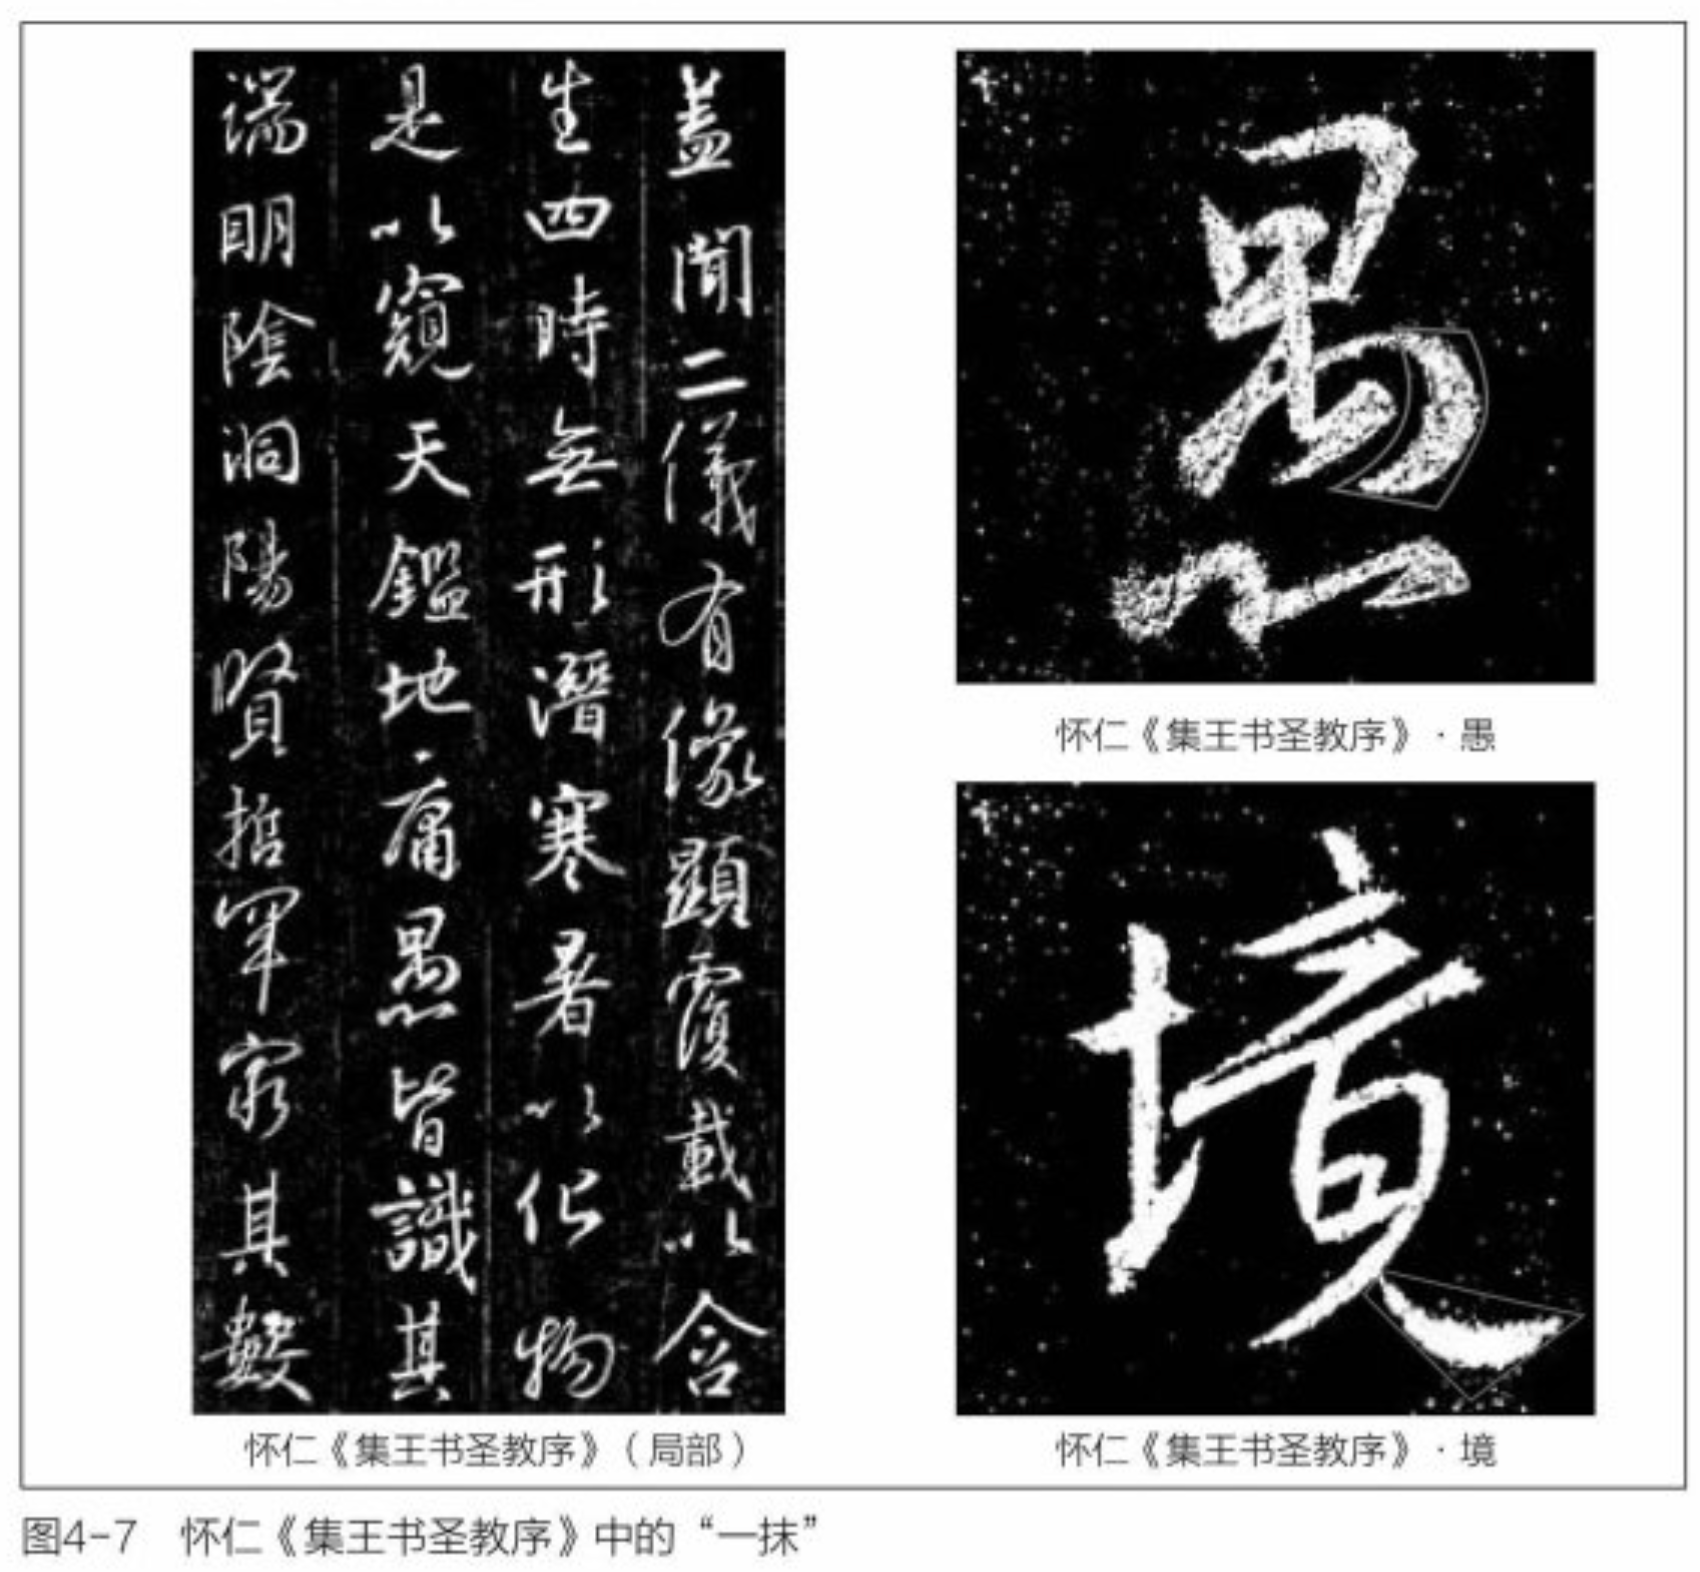 蓋聞二儀有像顯覆載以含
生四時無形潛寒暑以化物
是以窺天鑑地庸愚皆識其
端明陰洞陽賢哲罕窮其數
怀仁《集王书圣教序》（局部）
愚
怀仁《集王书圣教序》·愚
境
怀仁《集王书圣教序》·境
图4-7 怀仁《集王书圣教序》中的“一抹”